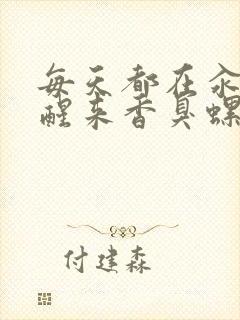 每天都在汆
醒来香臭螺
付建森